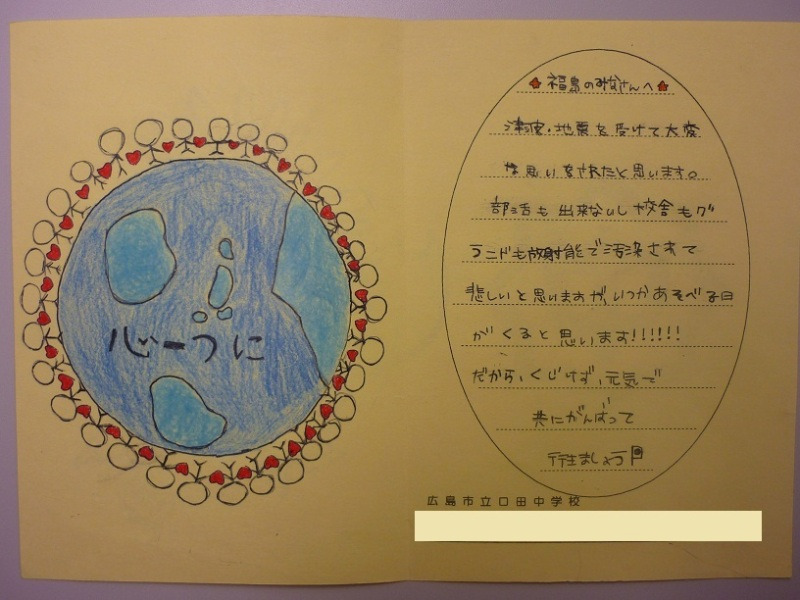 心一つに
福島のみなさんへ
津波・地震を受けて大変
な思いをされたと思います。
部活も出来ないし校舎もグ
ランドも放射能で汚染されて
悲しいと思いますが、いつかあそべる日
がくると思います!!!!!!
だから、くじけず、元気で
共にがんばって
行きましょう
広島市立口田中学校